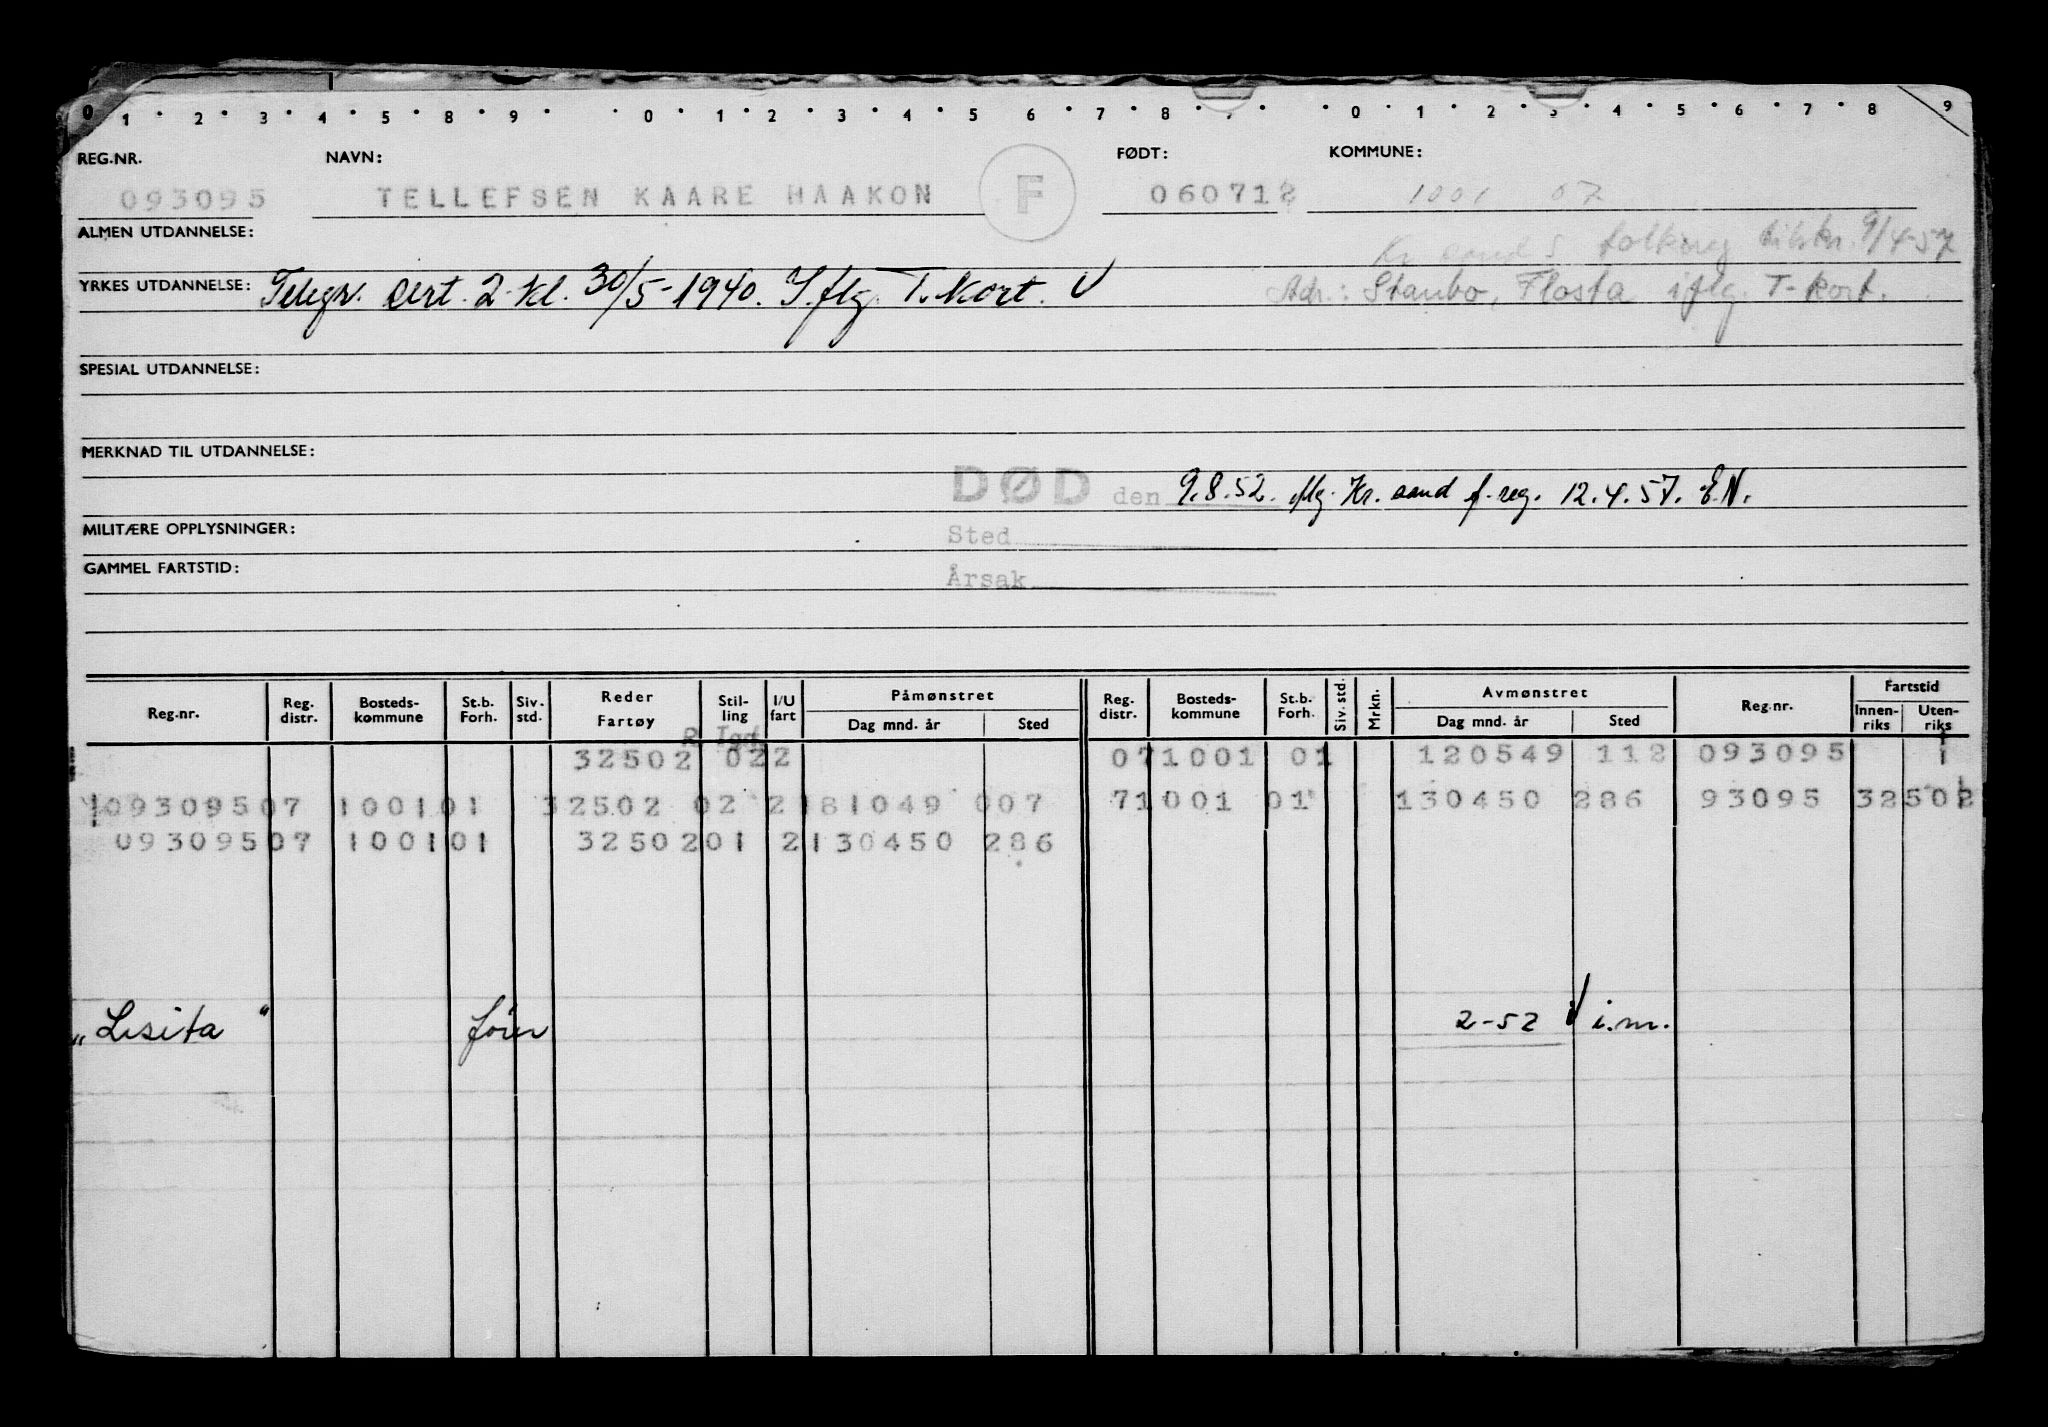 0 1 2 3 4 5 8 9 0 1 2 3 4 5 6 7 8 0 1 2 3 4 5 6 7 8 9
REG.NR. NAVN: FØDT: KOMMUNE:
093095 TELLEFSEN KAARE HAAKON F 060712 1001 07
ALMEN UTDANNELSE: Kr.sand S folkereg tilskr. 9/4-57
YRKES UTDANNELSE: Telegr. sert. 2. kl. 30/5-1940. I.flg. T.kort. V Adr.: Staubo, Flosta iflg. T-kort.
SPESIAL UTDANNELSE:
MERKNAD TIL UTDANNELSE:
DØD den 9.8.52. iflg. Kr.sand f.reg. 12.4.57. E.N.
MILITÆRE OPPLYSNINGER: Sted
GAMMEL FARTSTID: Årsak
Reg.nr. Reg. distr. Bosteds-kommune St.b. Forh. Siv. std. Reder Fartøy Stil-ling I/U fart Påmønstret Dag mnd. år Sted Reg. distr. Bosteds-kommune St.b. Forh. Siv. std. Mrkn. Avmønstret Dag mnd. år Sted Reg.nr. Fartstid Innen-riks Uten-riks
32502 022 071001 01 120549 112 093095 1
09309507 100101 32502 02 2181049 007 71001 01 130450 286 93095 32502
09309507 100101 3250201 2130450 286
"Lisita" fører 2-52 V i.m.